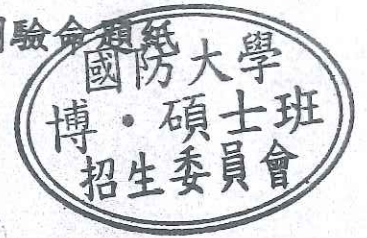 驗命題紙
國防大學
博・碩士班
招生委員會